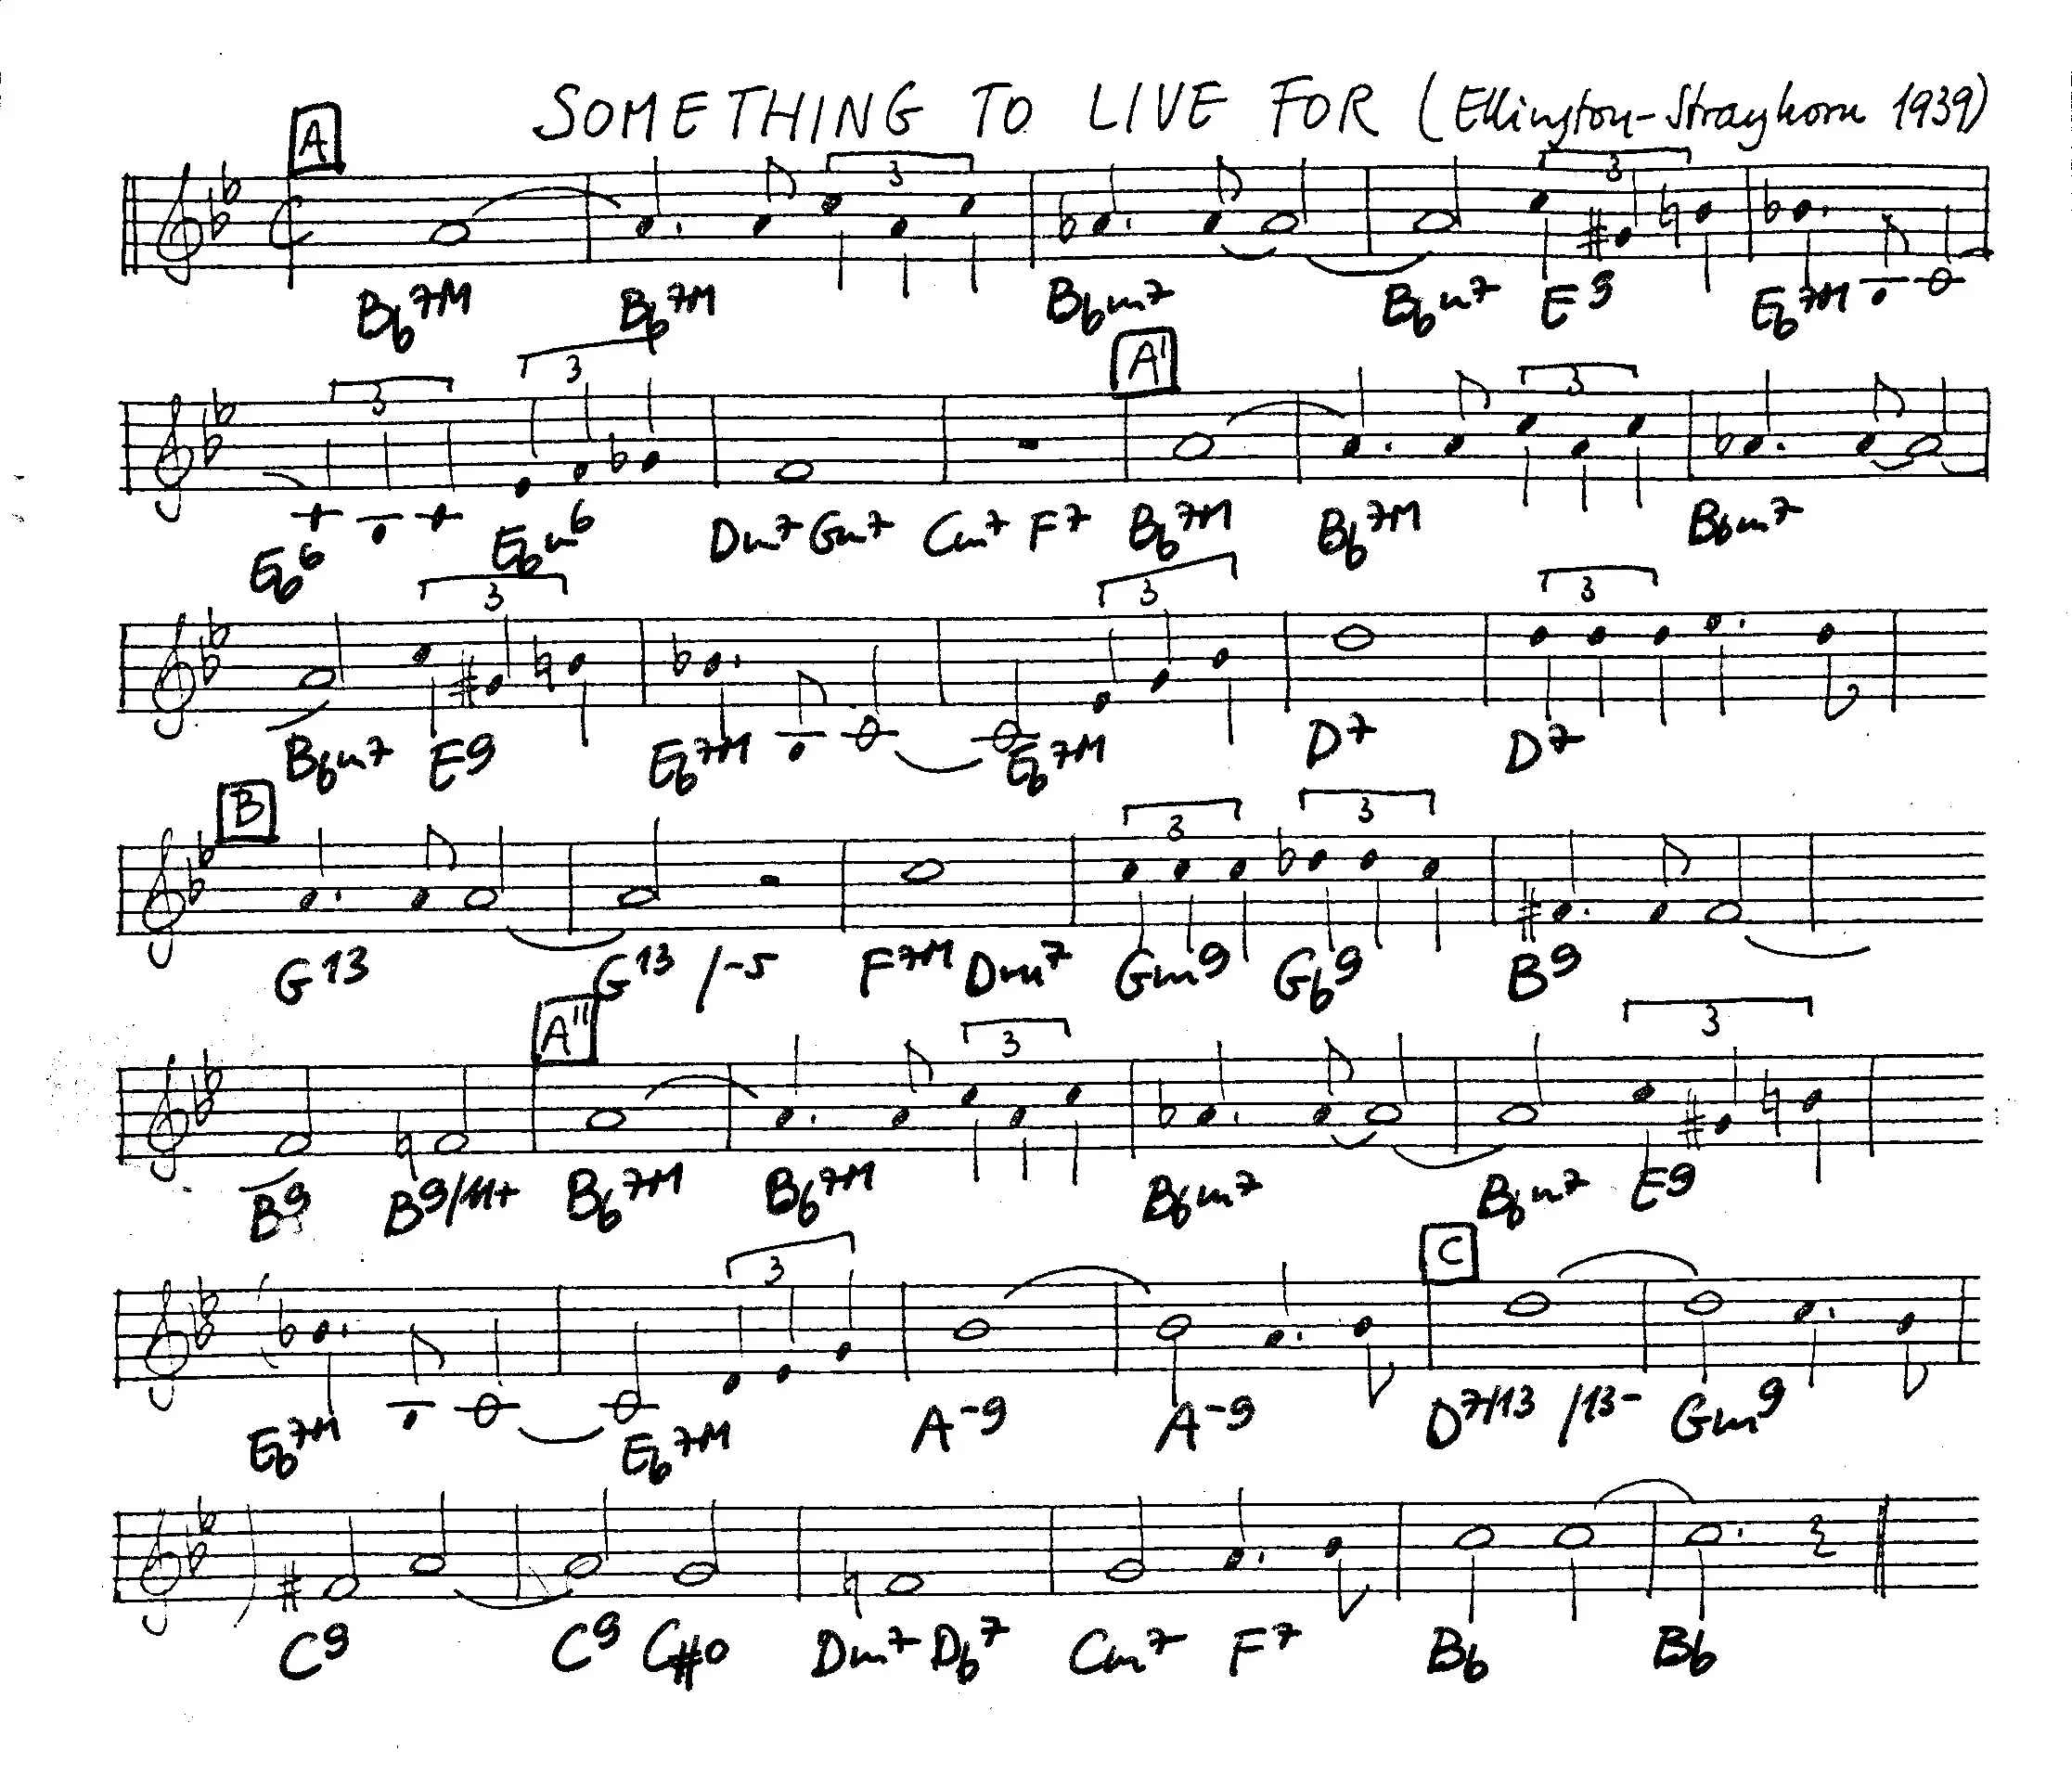 SOMETHING TO LIVE FOR (Ellington-Strayhorn 1939)
A
3 3
Bb7M Bb7M Bbm7 Bbm7 E9 Eb7M
3 3 A' 3
Eb6 Ebm6 Dm7 Gm7 Cm7 F7 Bb7M Bb7M Bbm7
3 3 3
Bbm7 E9 Eb7M Eb7M D7 D7
B 3 3
G13 G13 /-5 F7M Dm7 Gm9 Gb9 B9
A''' 3 3
B9 B9/11+ Bb7M Bb7M Bbm7 Bbm7 E9
3 C
Eb7M Eb7M A-9 A-9 D7/13 /13- Gm9
C9 C9 C#o Dm7 Db7 Cm7 F7 Bb Bb